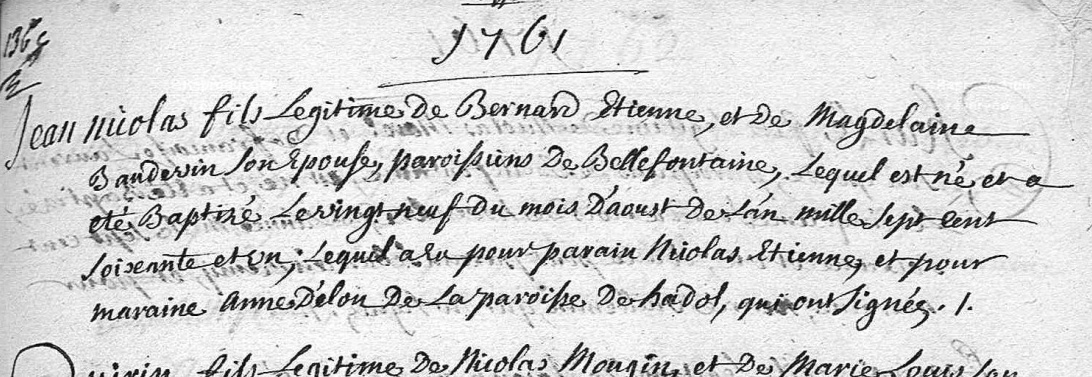 1761
Jean nicolas fils Legitime de Bernard Etienne, et de Magdelaine
Baudesin son Epouse, paroissiens de Bellefontaine, Lequel est né et a
eté Baptizé Le vingt neuf du mois D'aoust de L'an mille sept cent
soixante et un, Lequel a Eu pour parain Nicolas Etienne, et pour
maraine Anne Delon de La paroisse de hadol, qui ont signés. /.
fils Legitime de Nicolas Mougin, et de Marie Louis son